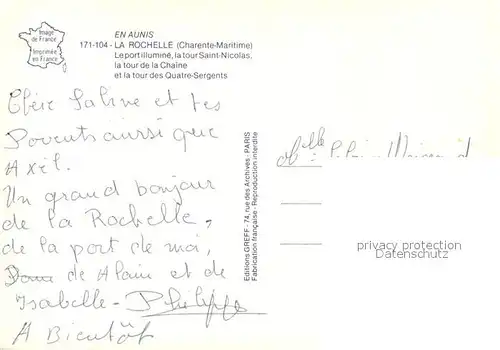 Image
de France
Imprimée
en France
EN AUNIS
171-104 - LA ROCHELLE (Charente-Maritime)
Le port illuminé, la tour Saint-Nicolas,
la tour de la Chaîne
et la tour des Quatre-Sergents
Chère Sabine et tes
Parents aussi que
Axel.
Un grand bonjour
de la Rochelle,
de la part de moi,
de Alain et de
Isabelle - Philippe
A Bientôt
Editions GREFF - 74, rue des Archives - PARIS
Fabrication française - Reproduction interdite
Melle
privacy protection
Datenschutz